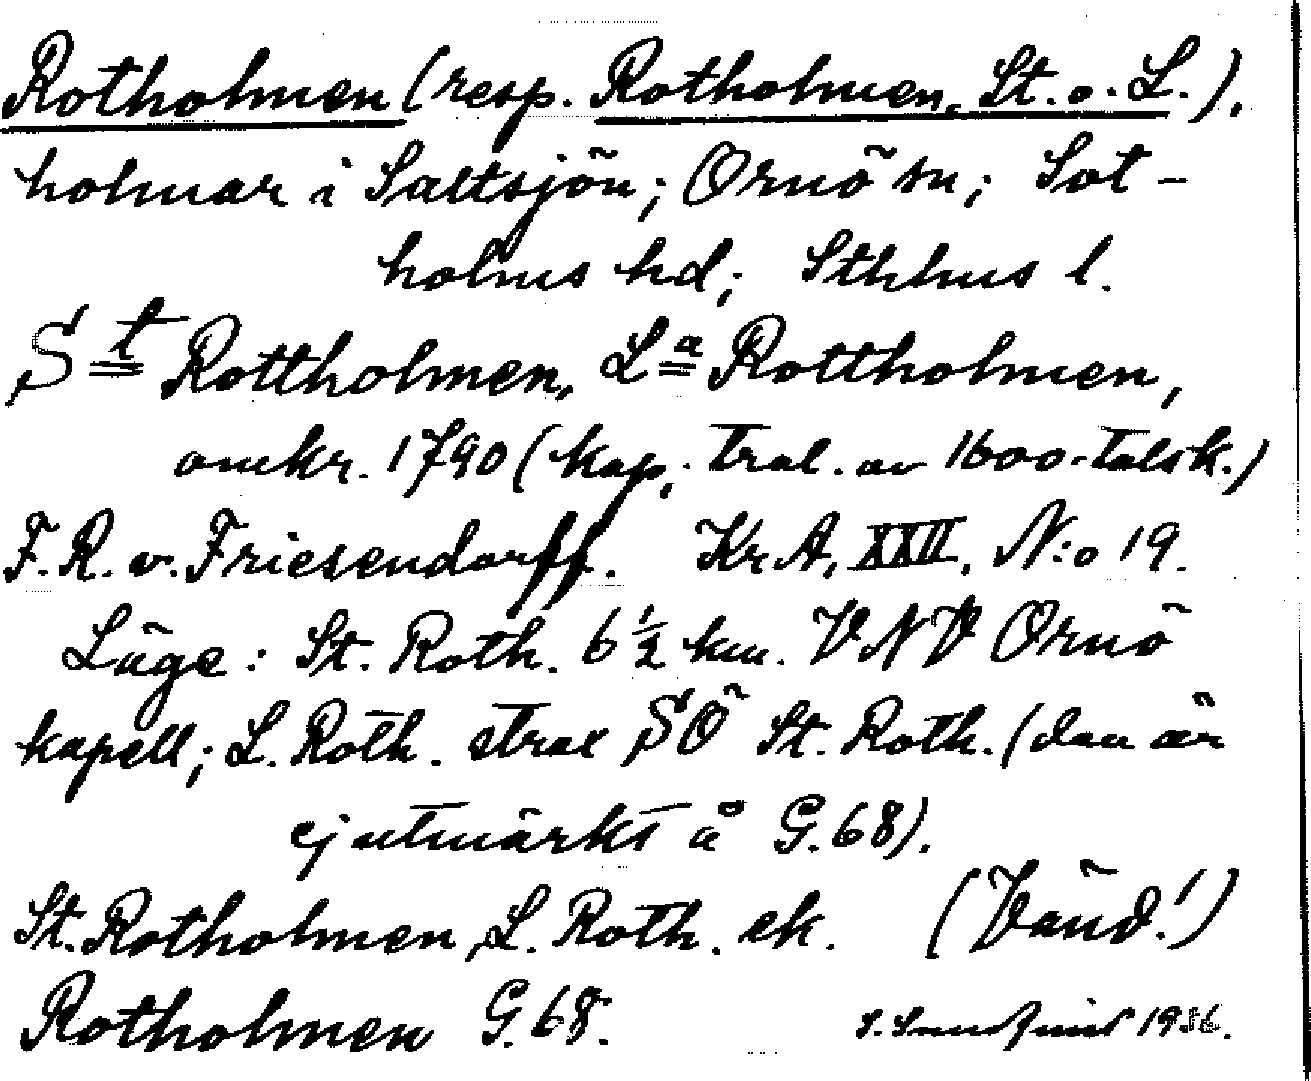 Rotholmen (resp. Rotholmen, St. o. L.),
holmar i Saltsjön; Ornö sn; Sot-
holms hd; Sthlms l.
St Rottholmen, La Rottholmen,
omkr. 1790 (kap. tral. av 1600-talsk.)
F. R. v. Friesendorff. Kr A, XXII, N:o 19.
Läge: St. Roth. 6 ½ km. VNV Ornö
kapell; L. Roth. strax SÖ St. Roth. (den är
ej utmärkt å G. 68).
St. Rotholmen, L. Roth. ek. (Vänd!)
Rotholmen G. 68. 1936.